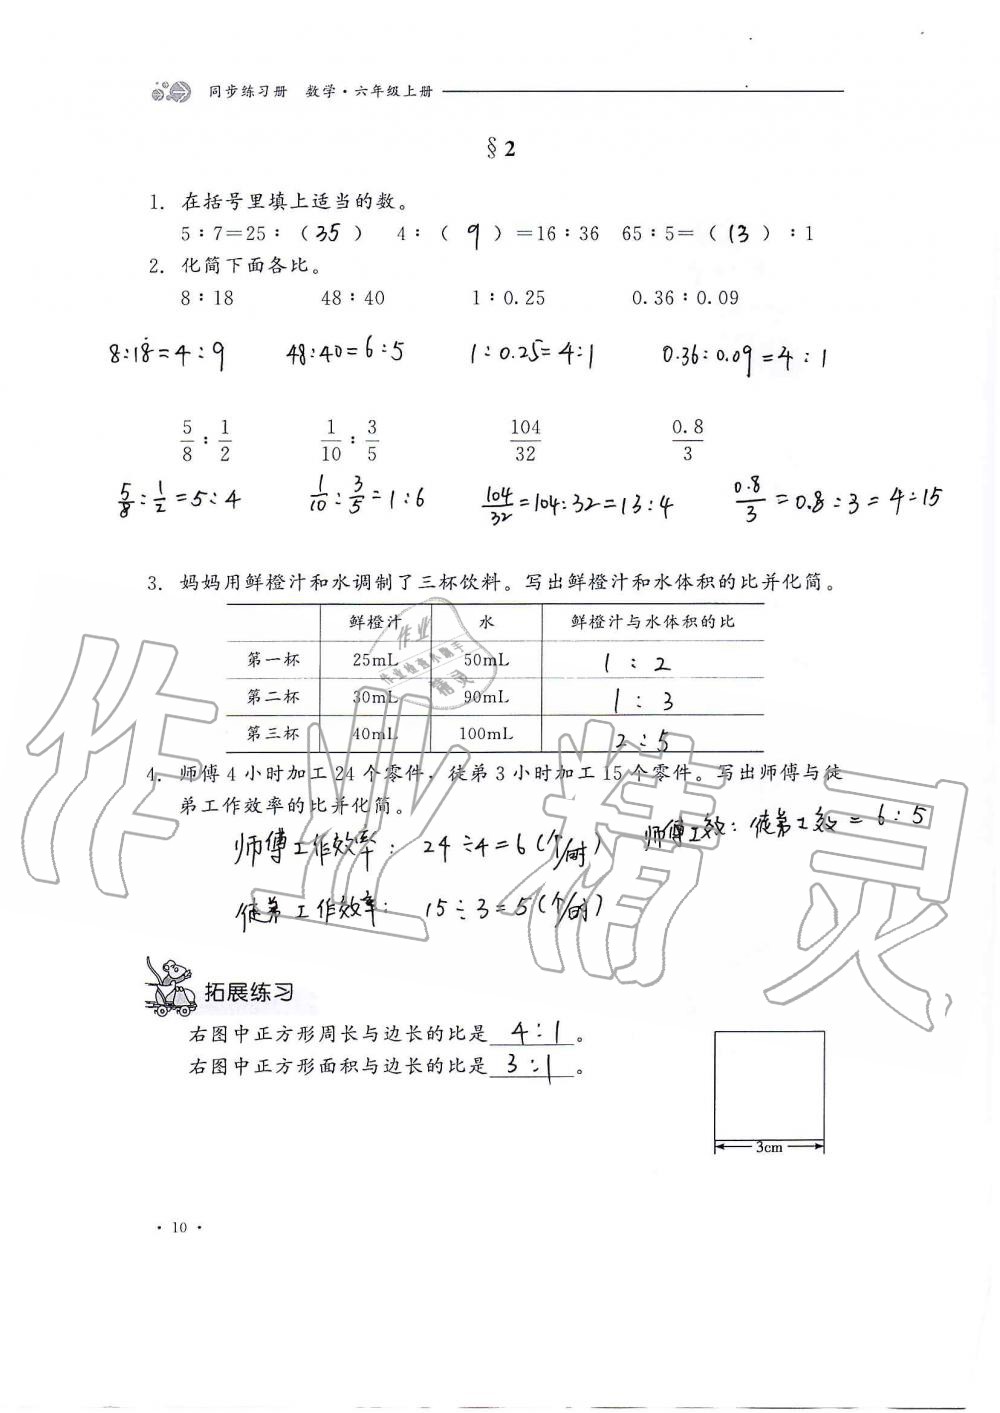 同步练习册 数学·六年级上册
§2
1. 在括号里填上适当的数。
5∶7=25∶(35) 4∶(9)=16∶36 65∶5=(13)∶1
2. 化简下面各比。
8∶18 48∶40 1∶0.25 0.36∶0.09
8:18=4:9 48:40=6:5 1:0.25=4:1 0.36:0.09=4:1
5/8∶1/2 1/10∶3/5 104/32 0.8/3
5/8:1/2=5:4 1/10:3/5=1:6 104/32=104:32=13:4 0.8/3=0.8:3=4:15
3. 妈妈用鲜橙汁和水调制了三杯饮料。写出鲜橙汁和水体积的比并化简。
鲜橙汁 水 鲜橙汁与水体积的比
第一杯 25mL 50mL 1:2
第二杯 30mL 90mL 1:3
第三杯 40mL 100mL 2:5
4. 师傅4小时加工24个零件，徒弟3小时加工15个零件。写出师傅与徒
弟工作效率的比并化简。
师傅工作效率: 24÷4=6(个/时) 师傅工效:徒弟工效=6:5
徒弟工作效率: 15÷3=5(个/时)
拓展练习
右图中正方形周长与边长的比是 4:1 。
右图中正方形面积与边长的比是 3:1 。
3cm
·10·
作业精灵
作业
作业检查小助手
精灵